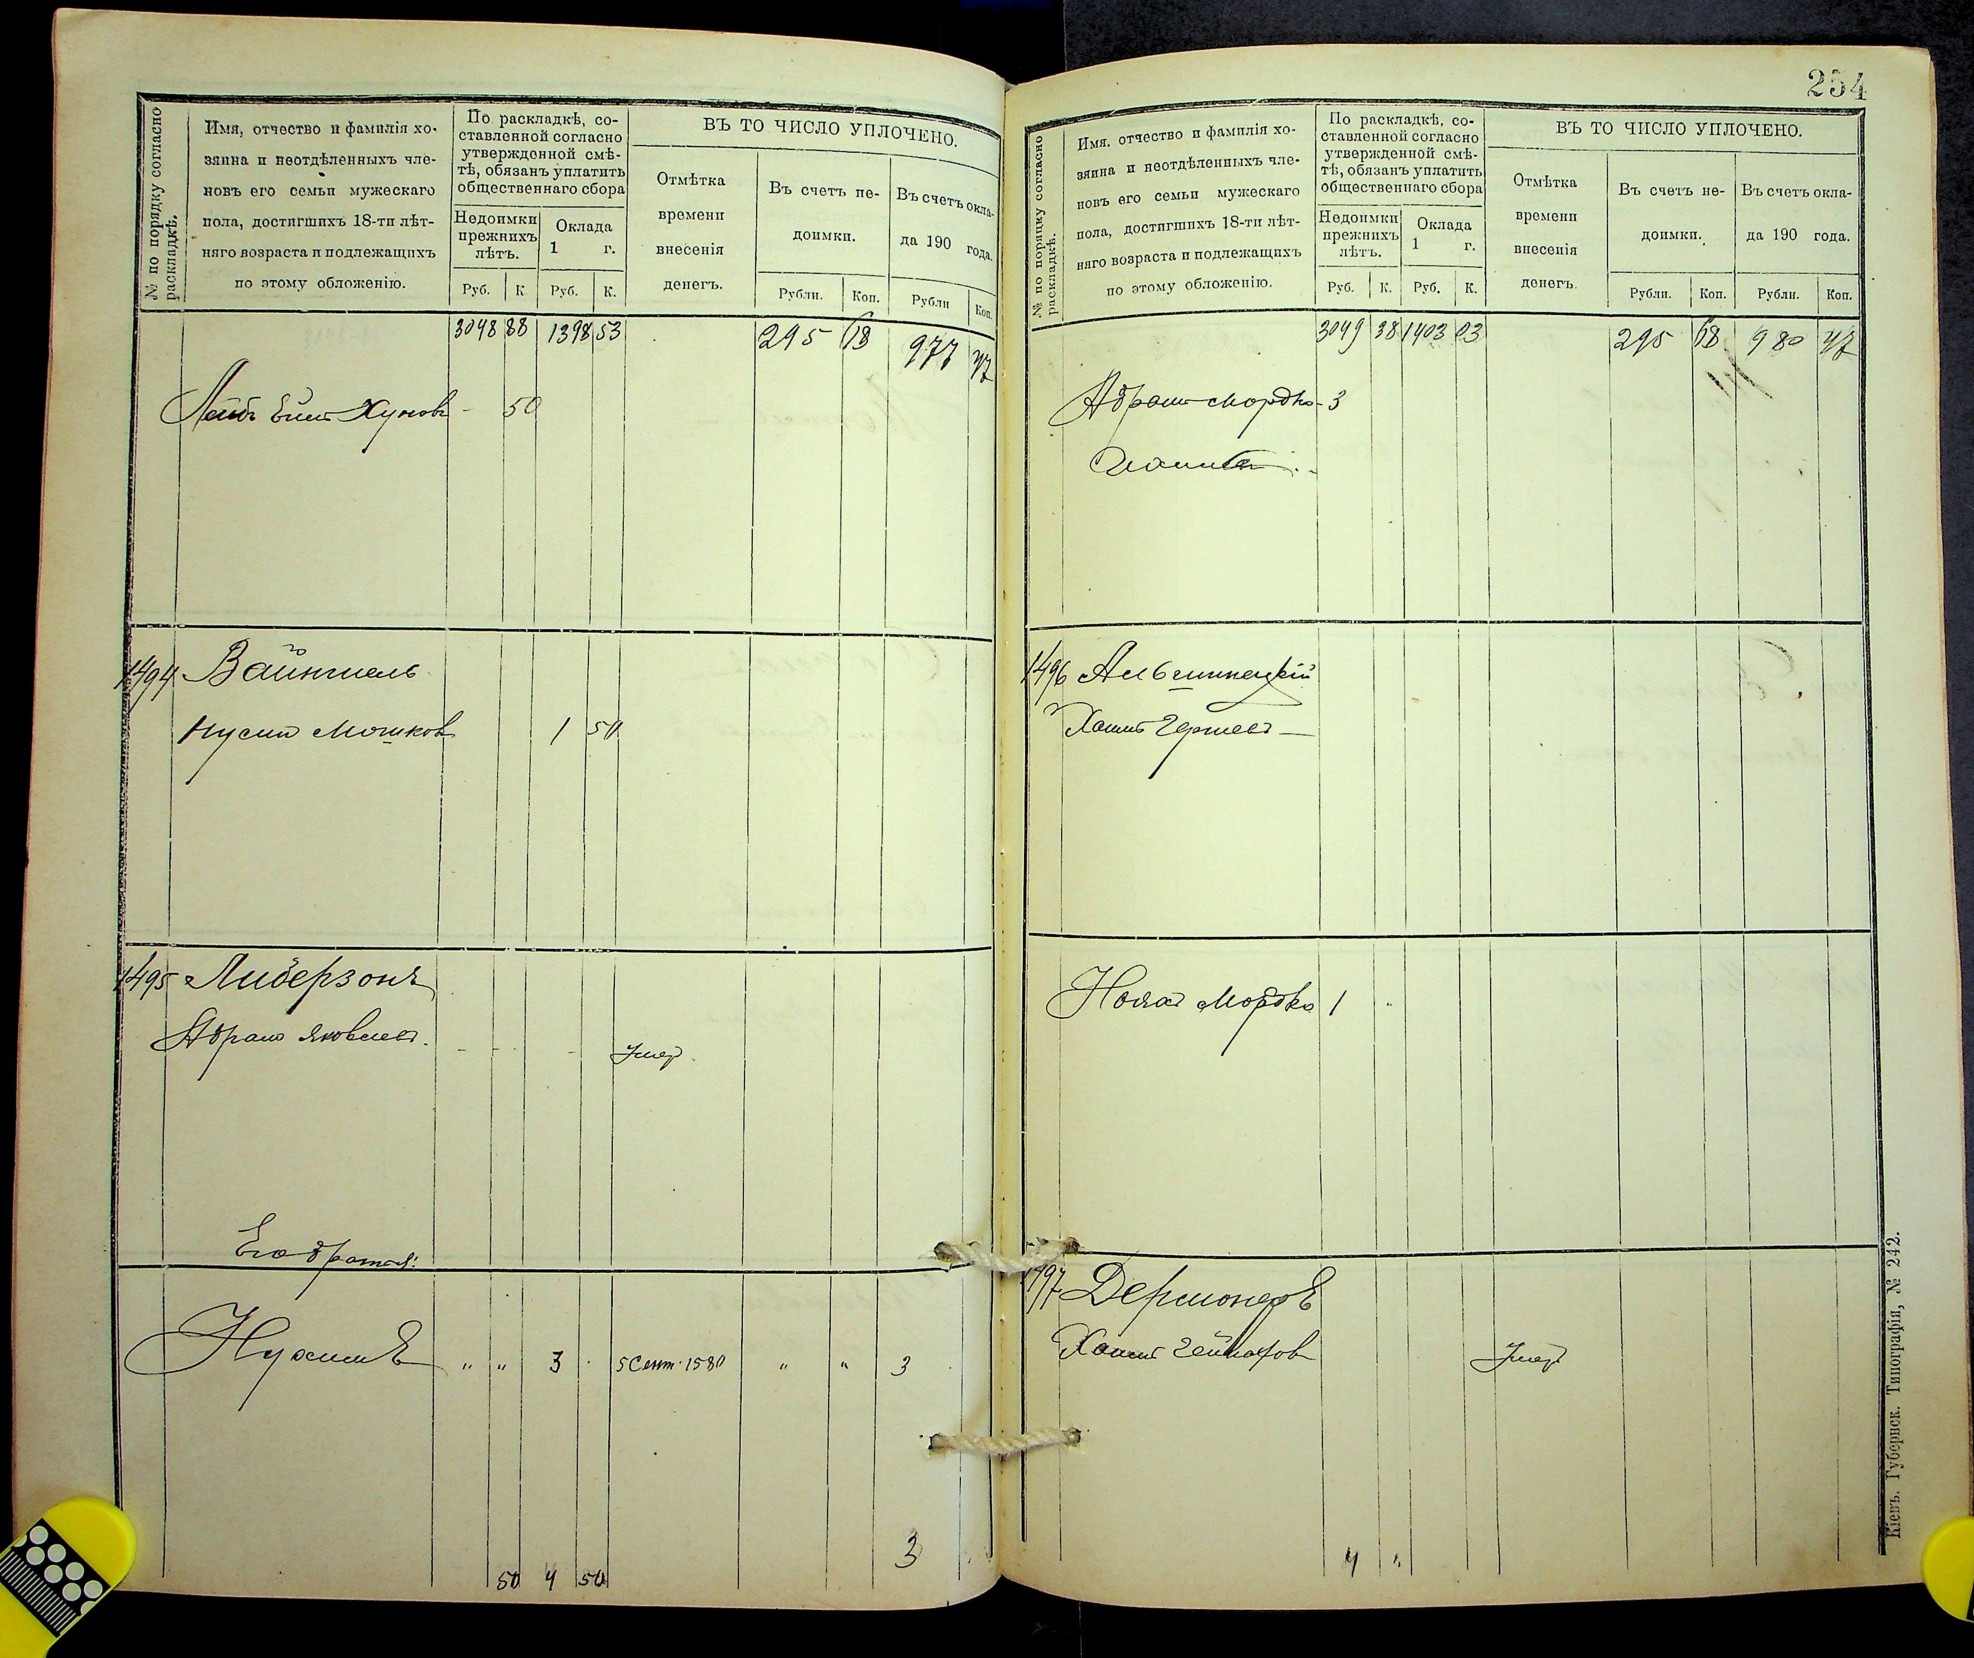 № по порядку согласно раскладкѣ.
Имя, отчество и фамилія хо-
зяина и неотдѣленныхъ чле-
новъ его семьи мужескаго
пола, достигшихъ 18-ти лѣт-
няго возраста и подлежащихъ
по этому обложенію.
По раскладкѣ, со-
ставленной согласно
утвержденной смѣ-
тѣ, обязанъ уплатить
общественнаго сбора
Недоимки
прежнихъ
лѣтъ.
Оклада
1 г.
Руб. К. Руб. К.
ВЪ ТО ЧИСЛО УПЛОЧЕНО.
Отмѣтка
времени
внесенія
денегъ.
Въ счетъ не-
доимки.
Въ счетъ окла-
да 190 года.
Рубли. Коп. Рубли Коп.
3048 88 1398 53 295 18 977 47
50
1494 Вайнтпель
Нусинъ Мошковъ 1 50
1495 Либерзонъ
Абрамъ Яковлевъ. - - - Умер.
Его братья:
Нухимъ " " 3 5 Сент. 1580 " " 3
50 4 50 3
254
№ по порядку согласно раскладкѣ.
Имя. отчество и фамилія хо-
зяина и неотдѣленныхъ чле-
новъ его семьи мужескаго
пола, достигшихъ 18-ти лѣт-
няго возраста и подлежащихъ
по этому обложенію.
По раскладкѣ, со-
ставленной согласно
утвержденной смѣ-
тѣ, обязанъ уплатить
общественнаго сбора
Недоимки
прежнихъ
лѣтъ.
Оклада
1 г.
Руб. К. Руб. К.
ВЪ ТО ЧИСЛО УПЛОЧЕНО.
Отмѣтка
времени
внесенія
денегъ.
Въ счетъ не-
доимки.
Въ счетъ окла-
да 190 года.
Рубли. Коп. Рубли. Коп.
3049 38 1403 03 295 18 980 47
Абрамъ Мордко 3
1496
Хаимъ Гершевъ
Мордко 1 "
1497
Хаимъ Умеръ
4 "
Кіевъ. Губернск. Типографія, № 242.